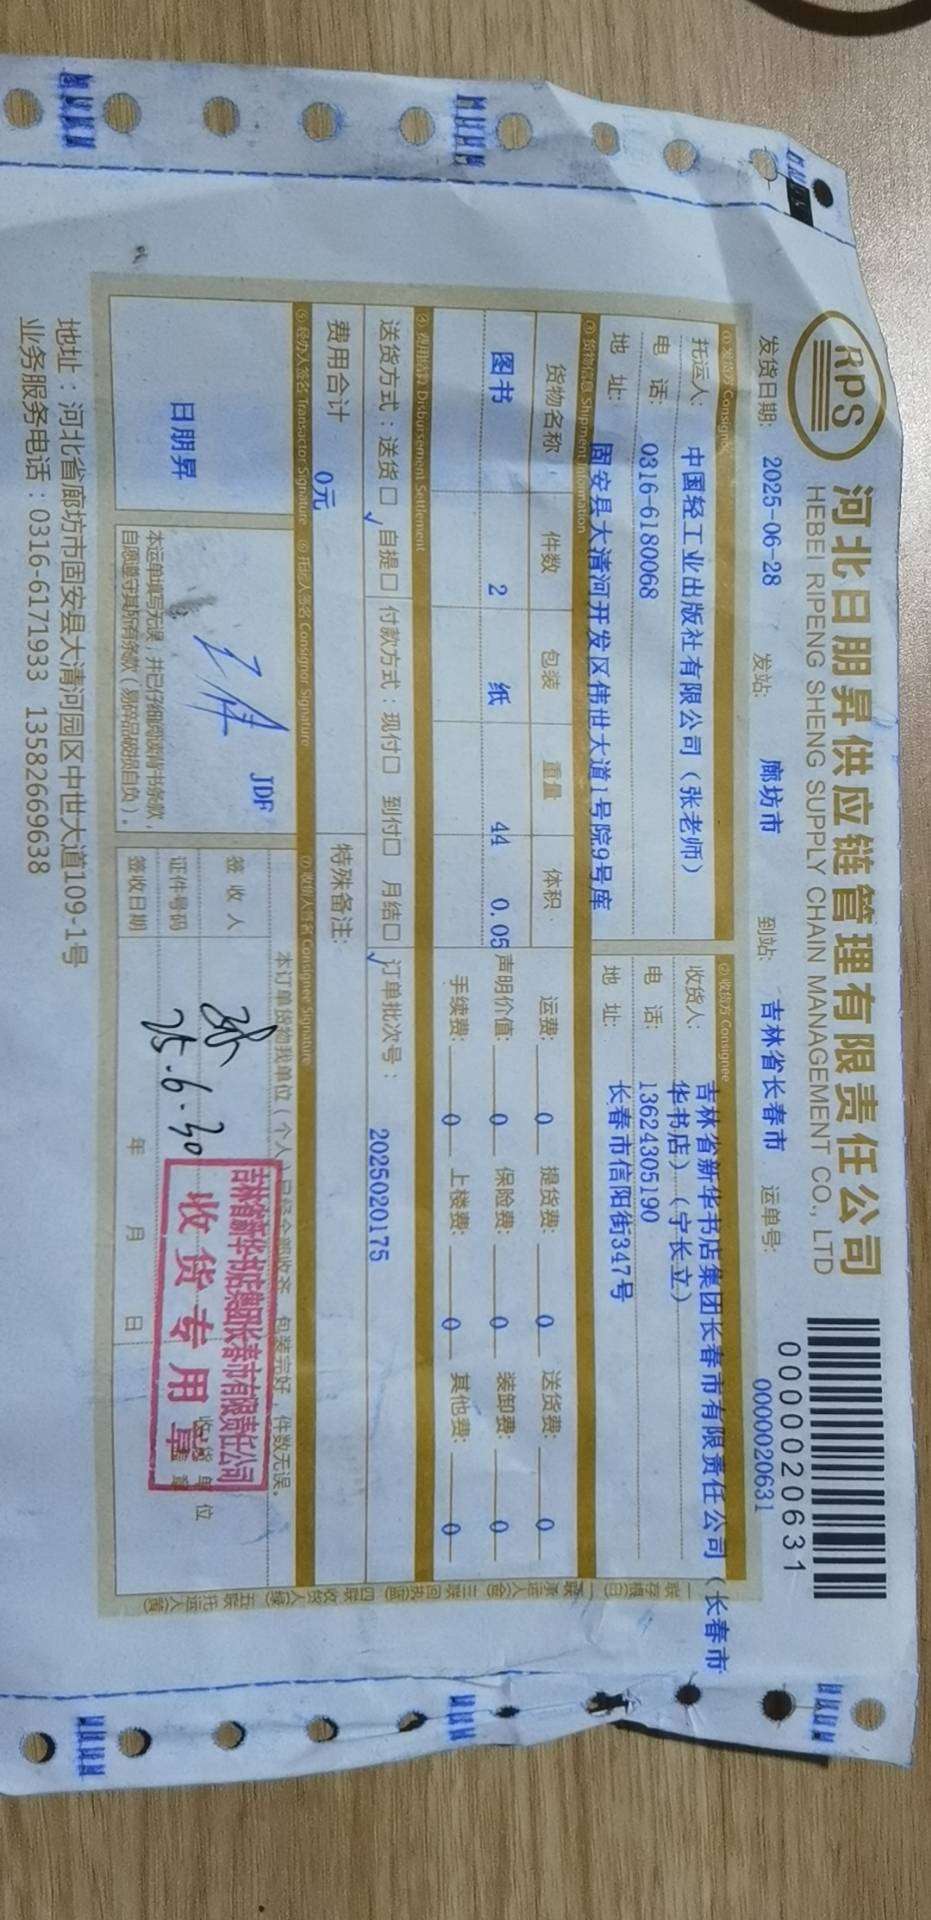 RPS
河北日朋昇供应链管理有限责任公司
HEBEI RIPENG SHENG SUPPLY CHAIN MANAGEMENT CO., LTD
0000020631
发货日期: 2025-06-28 发站: 廊坊市 到站: 吉林省长春市 运单号: 0000020631
①发货方 Consigner
②收货方 Consignee
托运人: 中国轻工业出版社有限公司（张老师）
电 话: 0316-6180068
地 址: 固安县大清河开发区伟世大道1号院9号库
收货人: 吉林省新华书店集团长春市有限责任公司（长春市
华书店）（宁长立）
电 话: 13624305190
地 址: 长春市信阳街347号
③货物信息 Shipment Information
货物名称 件数 包装 重量 体积
图书 2 纸 44 0.05
运费: 0 提货费: 0 送货费: 0
声明价值: 0 保险费: 0 装卸费: 0
手续费: 0 上楼费: 0 其他费: 0
④费用结算 Disbursement Settlement
送货方式：送货□ 自提□ 付款方式：现付□ 到付□ 月结□ 订单批次号： 2025020175
费用合计 0元
特殊备注:
⑤经办人签名 Transactor Signature
⑥托运人签名 Consignor Signature
⑦收货人签名 Consignee Signature
日朋昇
JDF
本运单填写无误，并已仔细阅读背书条款，
自愿遵守其所有条款（易碎品破损自负）。
本订单货物我单位（个人）已经全部收齐 包装完好 件数无误。
签 收 人
证件号码
签收日期
25.6.30
年 月 日
吉林省新华书店集团长春市有限责任公司
收货专用章
一联存根(白) 二联承运人(金) 三联回执(蓝) 四联收货人(绿) 五联托运人(黄)
地址：河北省廊坊市固安县大清河园区中世大道109-1号
业务服务电话：0316-6171933 13582669638